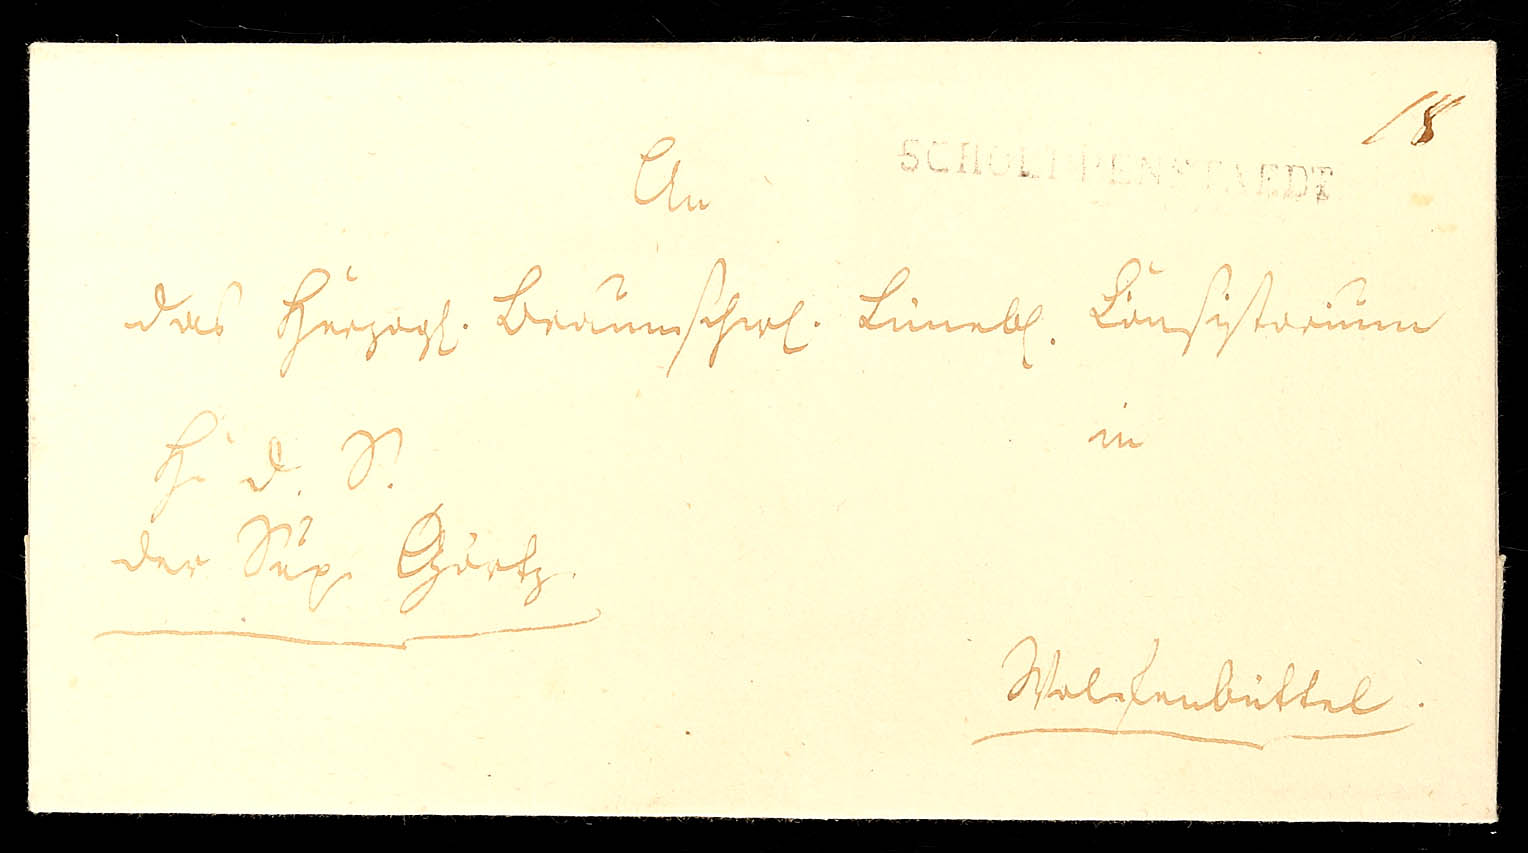 18
SCHOEPPENSTAEDT
An
das Herzogl. Braunschw. Lünebl. Consistorium
in
H. d. S.
der Sup. Görtz.
Wolfenbüttel.